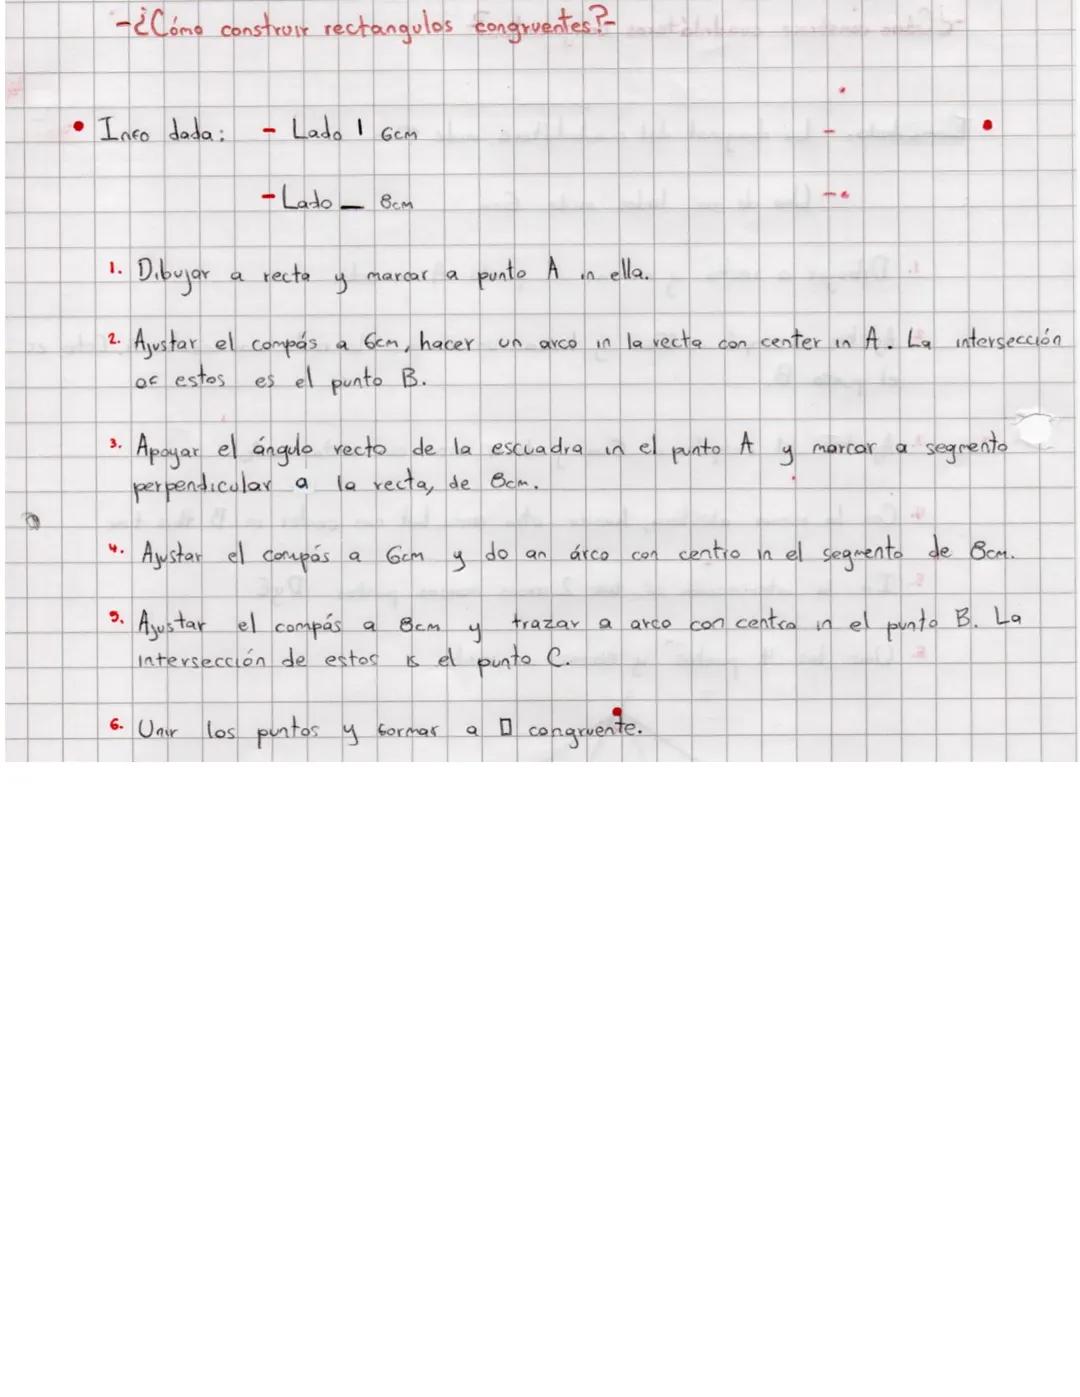 -¿Cómo construir rectangulos congruentes?-
• Info dada: - Lado | 6cm
- Lado _ 8cm
1. Dibujar a recta y marcar a punto A in ella.
2. Ajustar el compás a 6cm, hacer un arco in la recta con center in A. La intersección
of estos es el punto B.
3. Apoyar el ángulo recto de la escuadra in el punto A y marcar a segmento
perpendicular a la recta, de 8cm.
4. Ajustar el compás a 6cm y do an árco con centro in el segmento de 8cm.
5. Ajustar el compás a 8cm y trazar a arco con centro in el punto B. La
intersección de estos is el punto C.
6. Unir los puntos y formar a ▯ congruente.